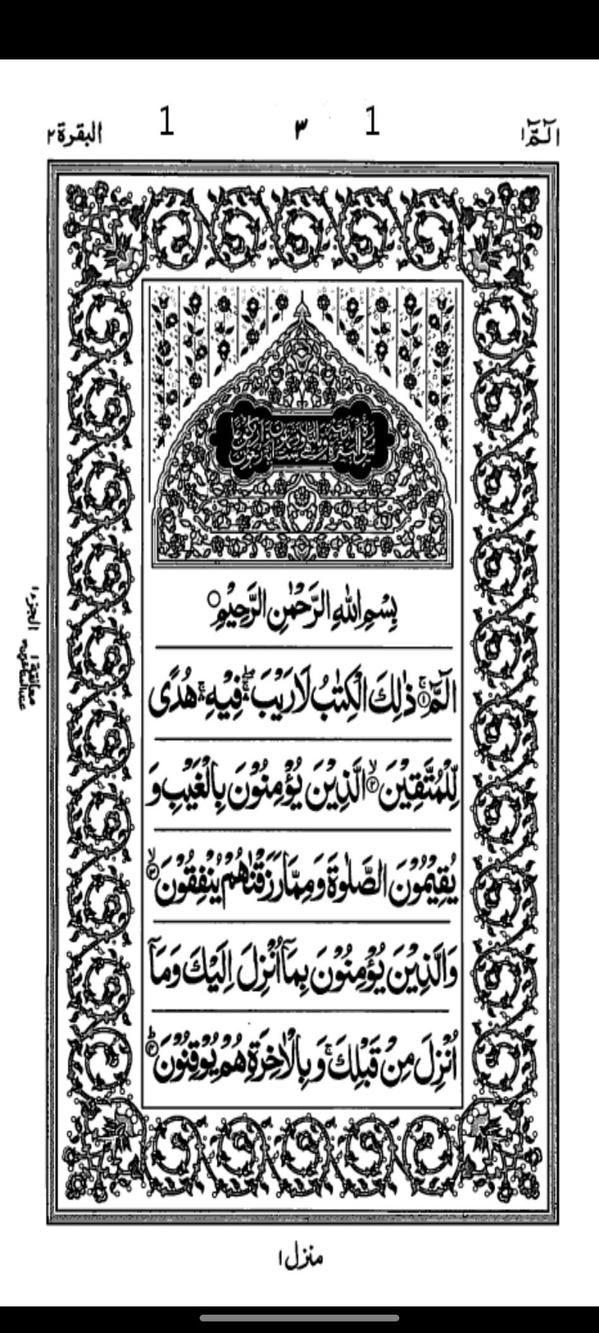 الٓمّٓ ١ 1 ٣ 1 البقرة ٢
بِسْمِ اللّٰهِ الرَّحْمٰنِ الرَّحِيْمِ ○
الٓمّٓ ۚ﴿۱﴾ ذٰلِكَ الْكِتٰبُ لَا رَيْبَ ۛۖ فِيْهِ ۛۚ هُدًى
لِّلْمُتَّقِيْنَ ۙ﴿۲﴾ الَّذِيْنَ يُؤْمِنُوْنَ بِالْغَيْبِ وَ
يُقِيْمُوْنَ الصَّلٰوةَ وَمِمَّا رَزَقْنٰهُمْ يُنْفِقُوْنَ ۙ﴿۳﴾
وَالَّذِيْنَ يُؤْمِنُوْنَ بِمَآ اُنْزِلَ اِلَيْكَ وَمَآ
اُنْزِلَ مِنْ قَبْلِكَ ۚ وَبِالْاٰخِرَةِ هُمْ يُوْقِنُوْنَ ؕ﴿۴﴾
الجزء ١
منزل ١